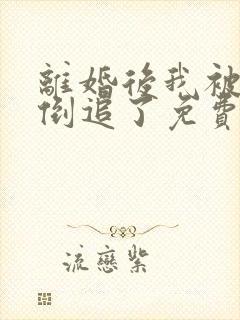 離婚後我被
倒追了免費
流戀紫